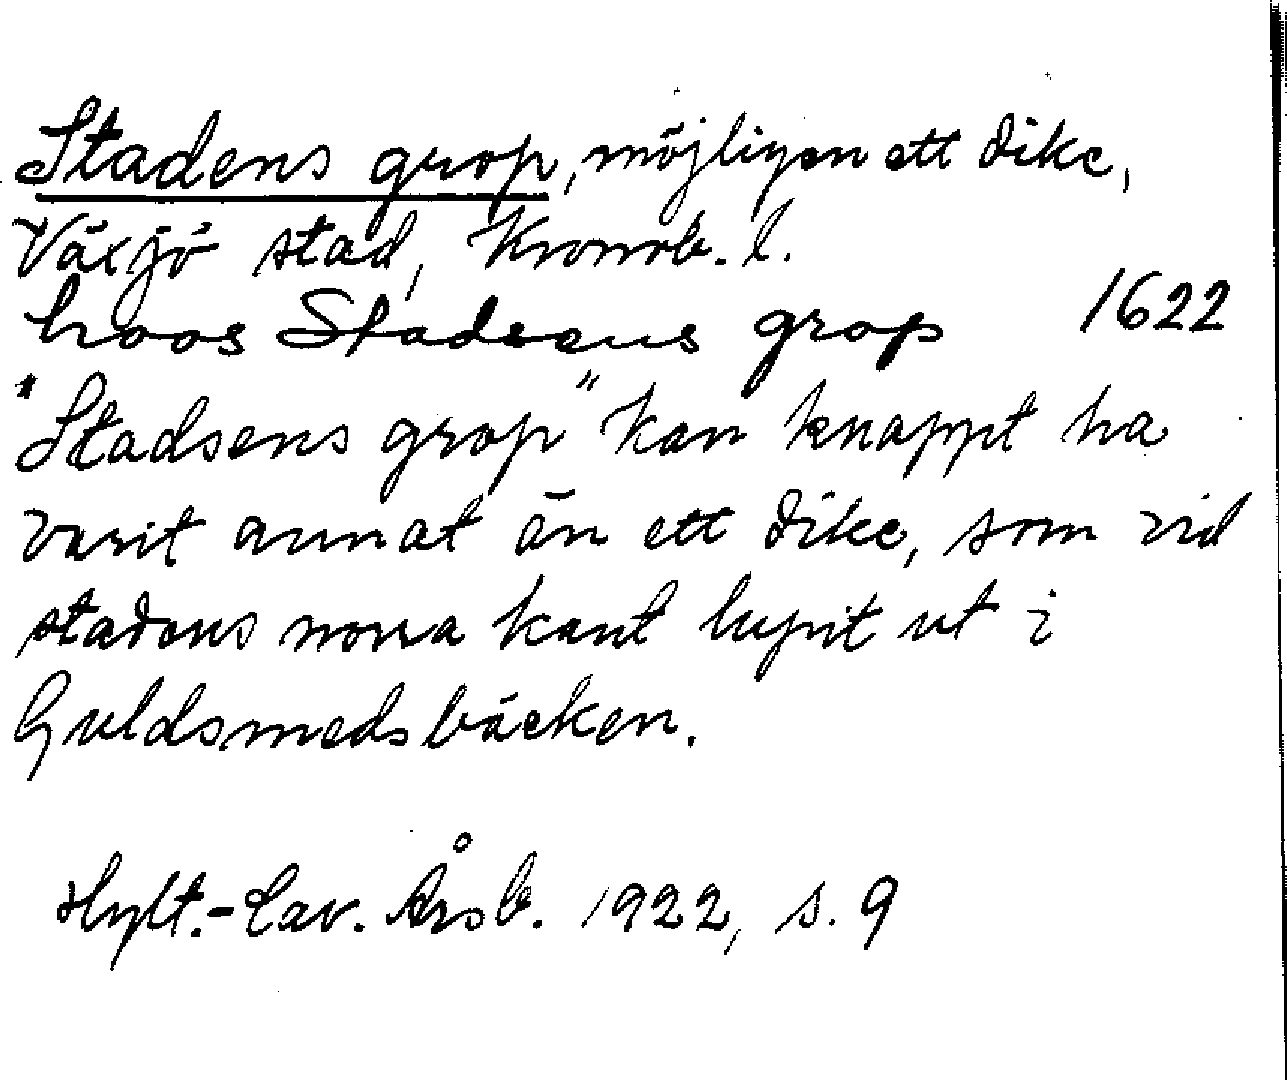 Stadens grop, möjligen ett dike,
Växjö stad, Kronob. l.
hoos Stadsens grop 1622
"Stadsens grop" kan knappt ha
varit annat än ett dike, som vid
stadens norra kant lupit ut i
Guldsmedsbäcken.
Hylt.-Cav. Årsb. 1922, s. 9